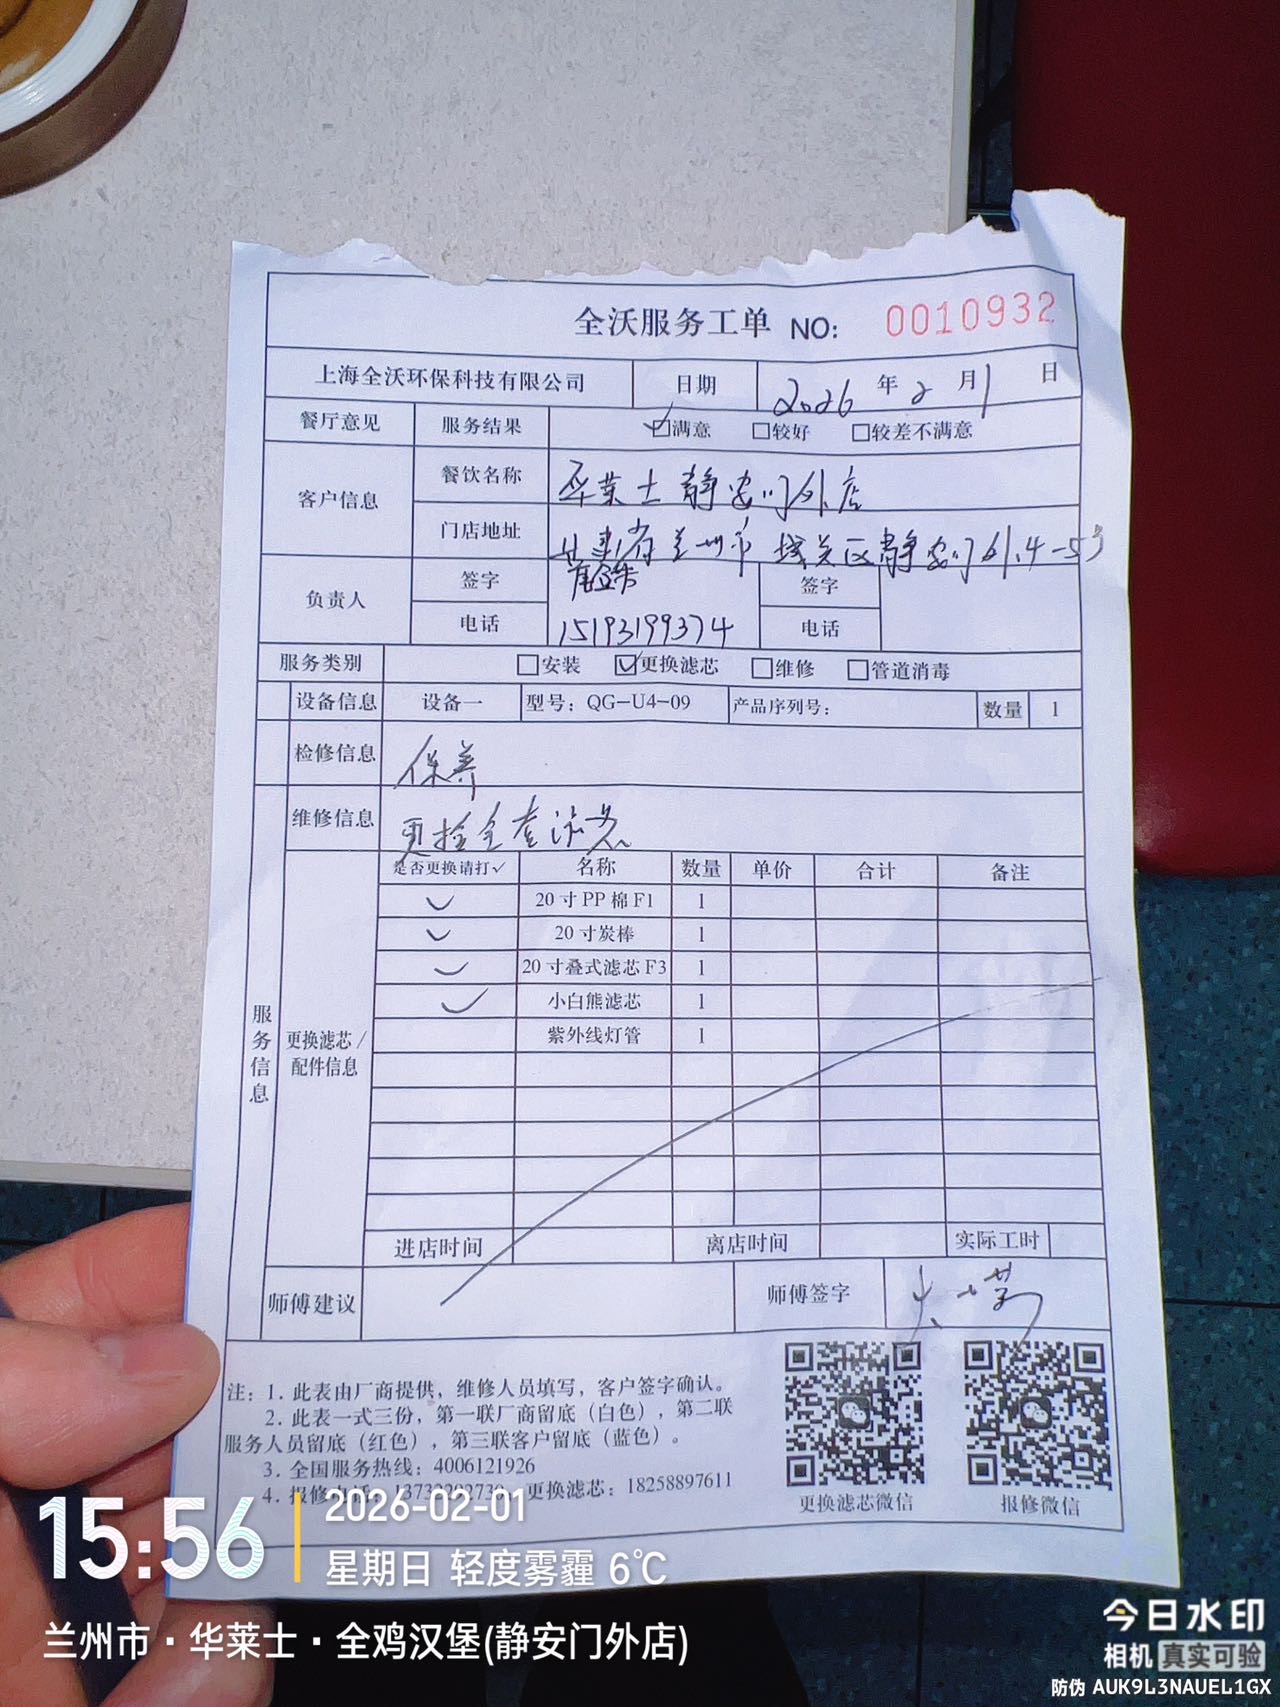 全沃服务工单 NO: 0010932
上海全沃环保科技有限公司 日期 2026 年 2 月 1 日
餐厅意见 服务结果 ☑满意 □较好 □较差不满意
客户信息 餐饮名称 华莱士静安门外店
门店地址 甘肃省兰州市城关区静安门外4-53
负责人 签字 签字
电话 15193199374 电话
服务类别 □安装 ☑更换滤芯 □维修 □管道消毒
设备信息 设备一 型号：QG-U4-09 产品序列号： 数量 1
检修信息 保养
维修信息 更换全套滤芯
服务信息
更换滤芯/
配件信息
是否更换请打✓ 名称 数量 单价 合计 备注
✓ 20寸PP棉F1 1
✓ 20寸炭棒 1
✓ 20寸叠式滤芯F3 1
✓ 小白熊滤芯 1
紫外线灯管 1
进店时间 离店时间 实际工时
师傅建议 师傅签字
注：1. 此表由厂商提供，维修人员填写，客户签字确认。
2. 此表一式三份，第一联厂商留底（白色），第二联
服务人员留底（红色），第三联客户留底（蓝色）。
3. 全国服务热线：4006121926
4. 报修电话： 更换滤芯：18258897611
更换滤芯微信 报修微信
15:56 2026-02-01
星期日 轻度雾霾 6℃
兰州市·华莱士·全鸡汉堡(静安门外店)
今日水印
相机 真实可验
防伪 AUK9L3NAUEL1GX